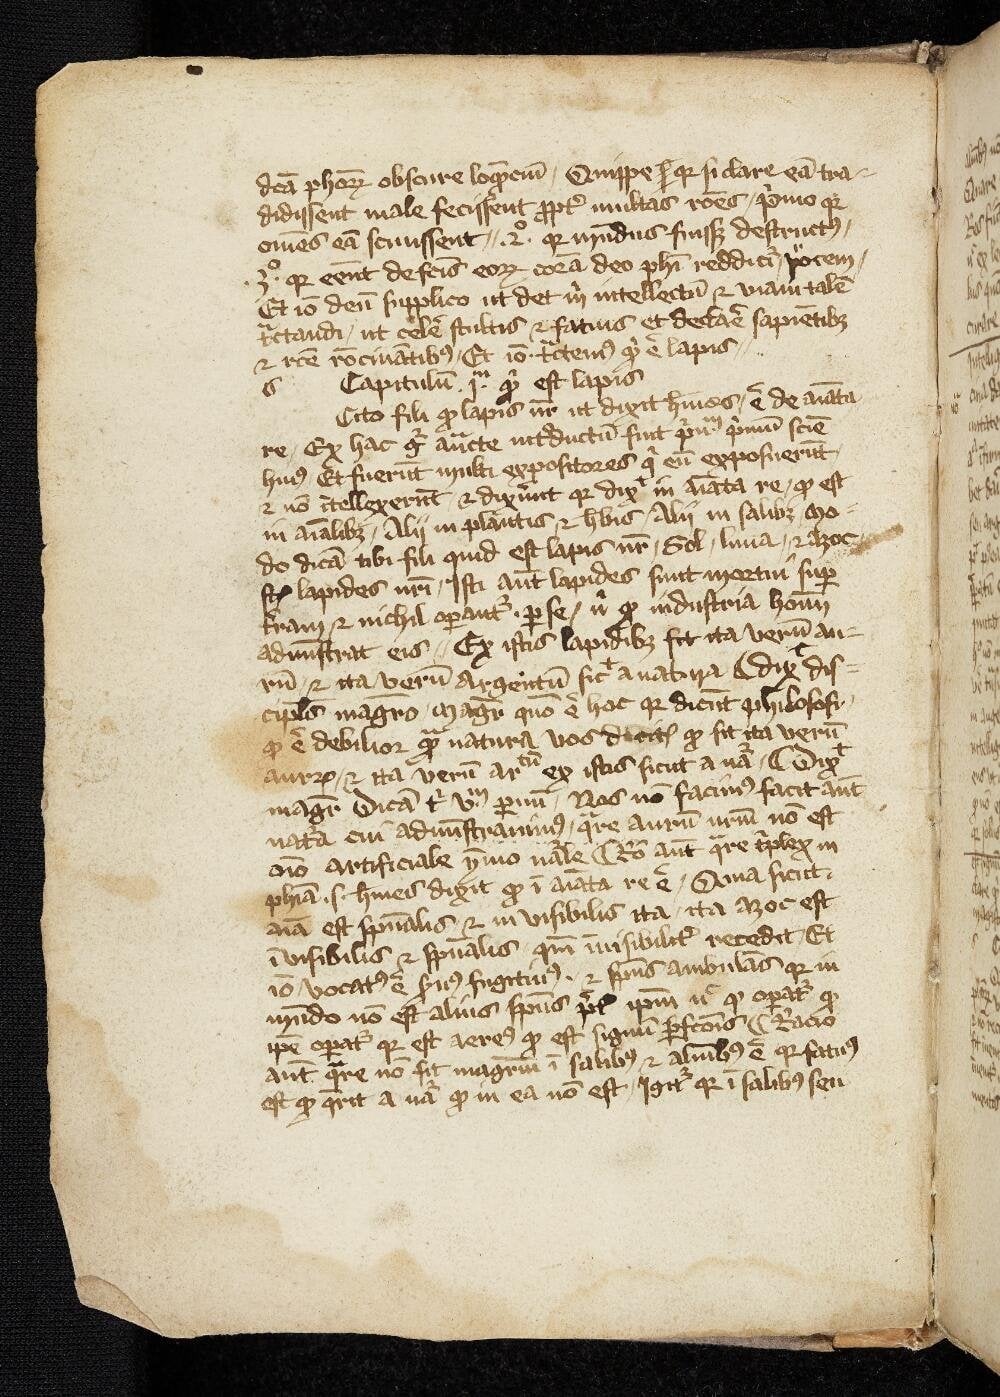 dc̄a ph̄orꝝ obscure loq̄nciū / Quippe qꝛ si clare eā tra-
didissent male fecissent ꝓpt̄ multas rōes / p̄mo qꝛ
omēs eā scivissent // .2.º qꝛ mūdus fuissꝫ destructꝰ /
.3.º qꝛ eēnt de fc̄is eorꝝ corā deo ph̄i reddit̄ rōcem /
Et iō deū supplico ut det m̄ intellectū ⁊ viam talē
t̄ctandi / ut celē stultis ⁊ fatuis et declarē sapiētibꝫ
⁊ rc̄e rōcinātibꝰ / Et iō t̄ctemꝰ q̄ ē lapis
Capitulū .j.m q̄ est lapis
Cito fili ꝙ lapis nr̄ ut dixit h̄mes / ē de aīata
re / Ex hac g̊ auc̄te int̄ductū fuit p̄m p̄mū scīe
huiꝰ / Et fuerūt multi expositores q̄ eū exposuerūt
⁊ nō ītellexerūt / ⁊ dixerūt qꝛ dixͭ in aīata re / ꝙ est
in aīalibꝫ / Alij in plantis ⁊ h̄bis / Alij in salibꝫ / Mo-
do dicā tibi fili quid est lapis nr̄ / Sol / luna / ⁊ azoc
st̄ lapides nr̄i / Isti aūt lapides sunt mortui suꝑ
t̄ram ⁊ nichil operant̄ . ꝑ se / n̄ ꝙ industria hoīm
admīstrat eis // Ex istis lapidibꝫ fit ita verū au-
rū / ⁊ ita verū argentū sicͭ a natura / dixͭ dis-
cipl̄s magr̄o / magr̄ quō ē hoc qꝛ dicūt philosofi
ꝙ ē debilior q̄ natura vos dicitꝭ ꝙ fit ita verū
aurꝝ / ⁊ ita verū artū ex istis sicut a nā / Dixͭ
magr̄ Dicā t̄ vm p̄mū / Nos nō facimꝰ facit aūt
nat̄a cui admīstramꝰ / q̄re aurū nr̄m nō est
oīo artificiale ymo nāle / Rō aūt q̄re t̄plex in
ph̄ia .s. h̄mes dixit ꝙ ī aīata re ē / Quia sicut
aīa est sp̄ualis ⁊ invisibilis ita / ita azoc est
īvisibilis ⁊ sp̄ualis / qm̄ īvisibilit̄ recedit / Et
iō vocatꝰ ē s̄vꝰ fugitivꝰ / ⁊ sp̄us ambulās qꝛ in
mūdo nō est alius sp̄us p̄t ip̄m n̄ ꝙ operat̄ ꝙ
ip̄e operat̄ qꝛ est aereꝰ ꝙ est signū ꝑfectōis / Racio
aūt q̄re nō fit magr̄m ī salibꝰ ⁊ alūibꝰ ē qꝛ fatuꝰ
est ꝙ q̄rit a nā ꝙ in ea nō est / Igit̄ qꝛ ī salibꝰ seu